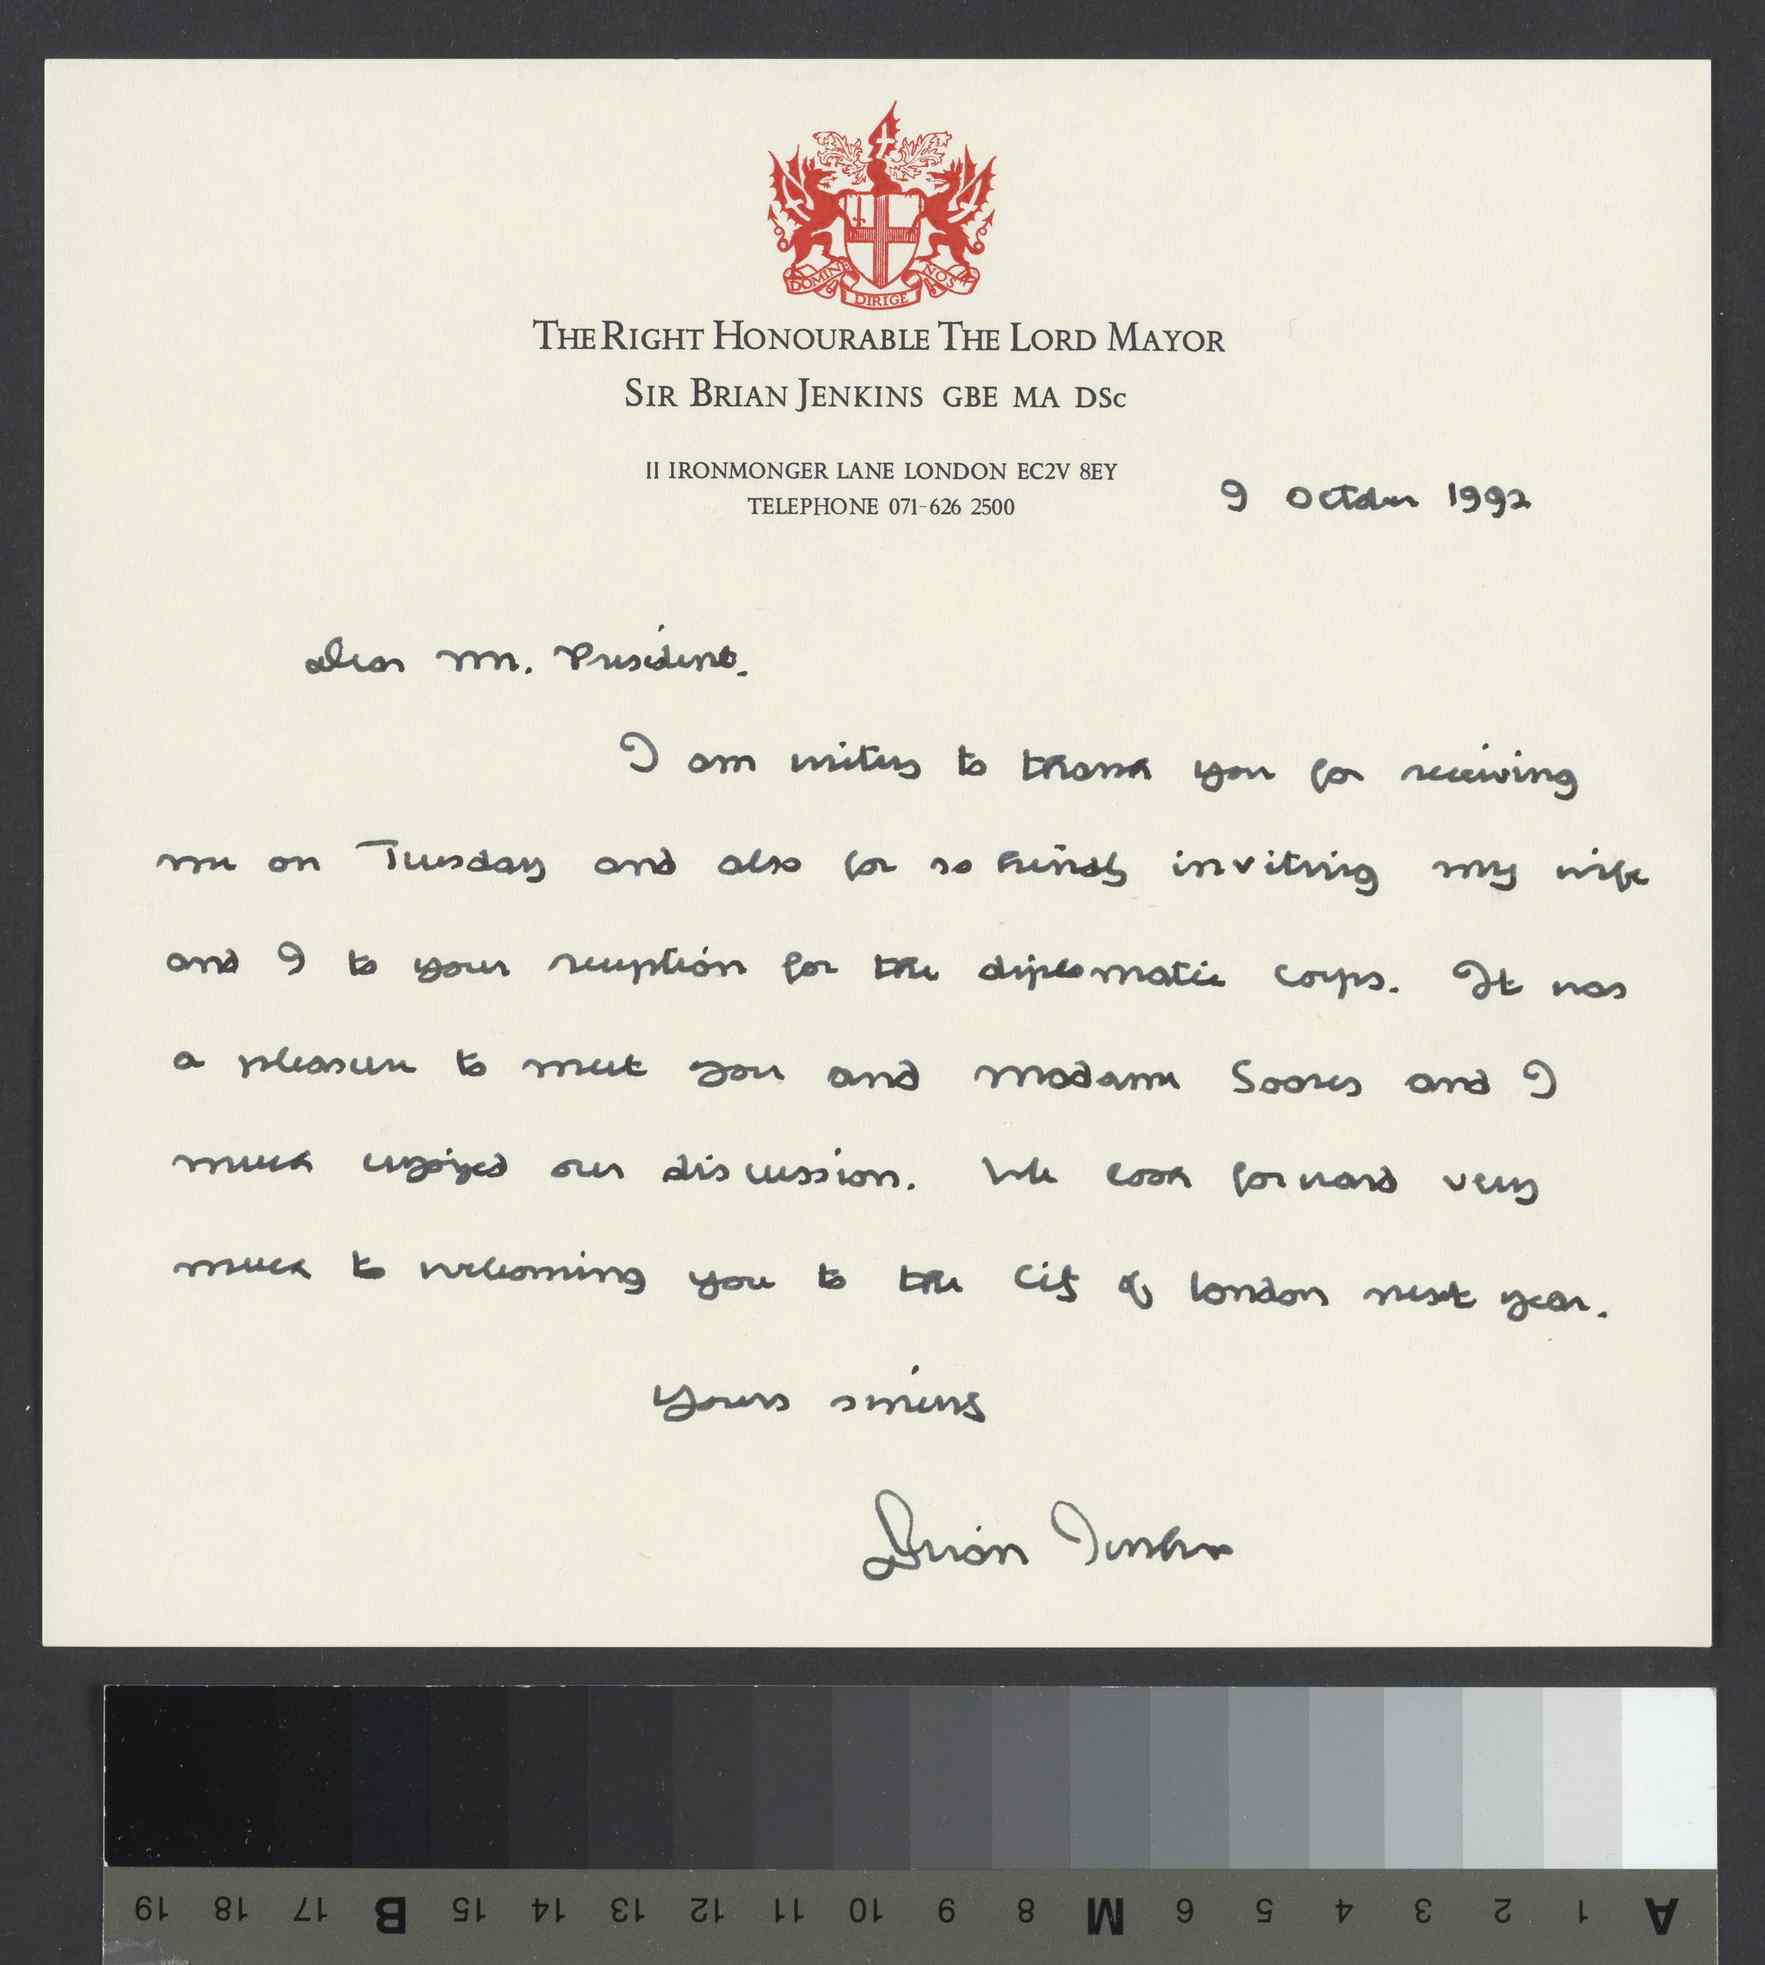 DOMINE DIRIGE NOS
THE RIGHT HONOURABLE THE LORD MAYOR
SIR BRIAN JENKINS GBE MA DSc
11 IRONMONGER LANE LONDON EC2V 8EY
TELEPHONE 071-626 2500
9 October 1992
Dear Mr. President.
I am writing to thank you for receiving
me on Tuesday and also for so kindly inviting my wife
and I to your reception for the diplomatic corps. It was
a pleasure to meet you and Madame Soares and I
much enjoyed our discussion. We look forward very
much to welcoming you to the City of London next year.
Yours sincerely
Brian Jenkins
A 1 2 3 4 5 6 M 8 9 10 11 12 13 14 15 B 17 18 19